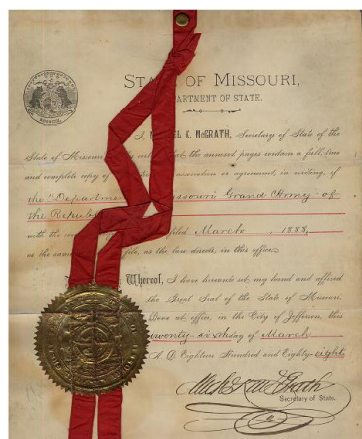 STATE OF MISSOURI,
DEPARTMENT OF STATE.
I, MICHAEL K. McGRATH, Secretary of State of the
State of Missouri that the annexed pages contain a full, true
and complete copy of association or agreement, in writing, of
the "Department Missouri Grand Army of
the Republic
with the filed March 1888,
as the same file, as the law directs, in this office.
Whereof, I have hereunto set my hand and affixed
the Great Seal of the State of Missouri.
Done at office, in the City of Jefferson, this
twenty-sixth day of March
A. D. Eighteen Hundred and Eighty-eight
Mich'l K McGrath
Secretary of State.